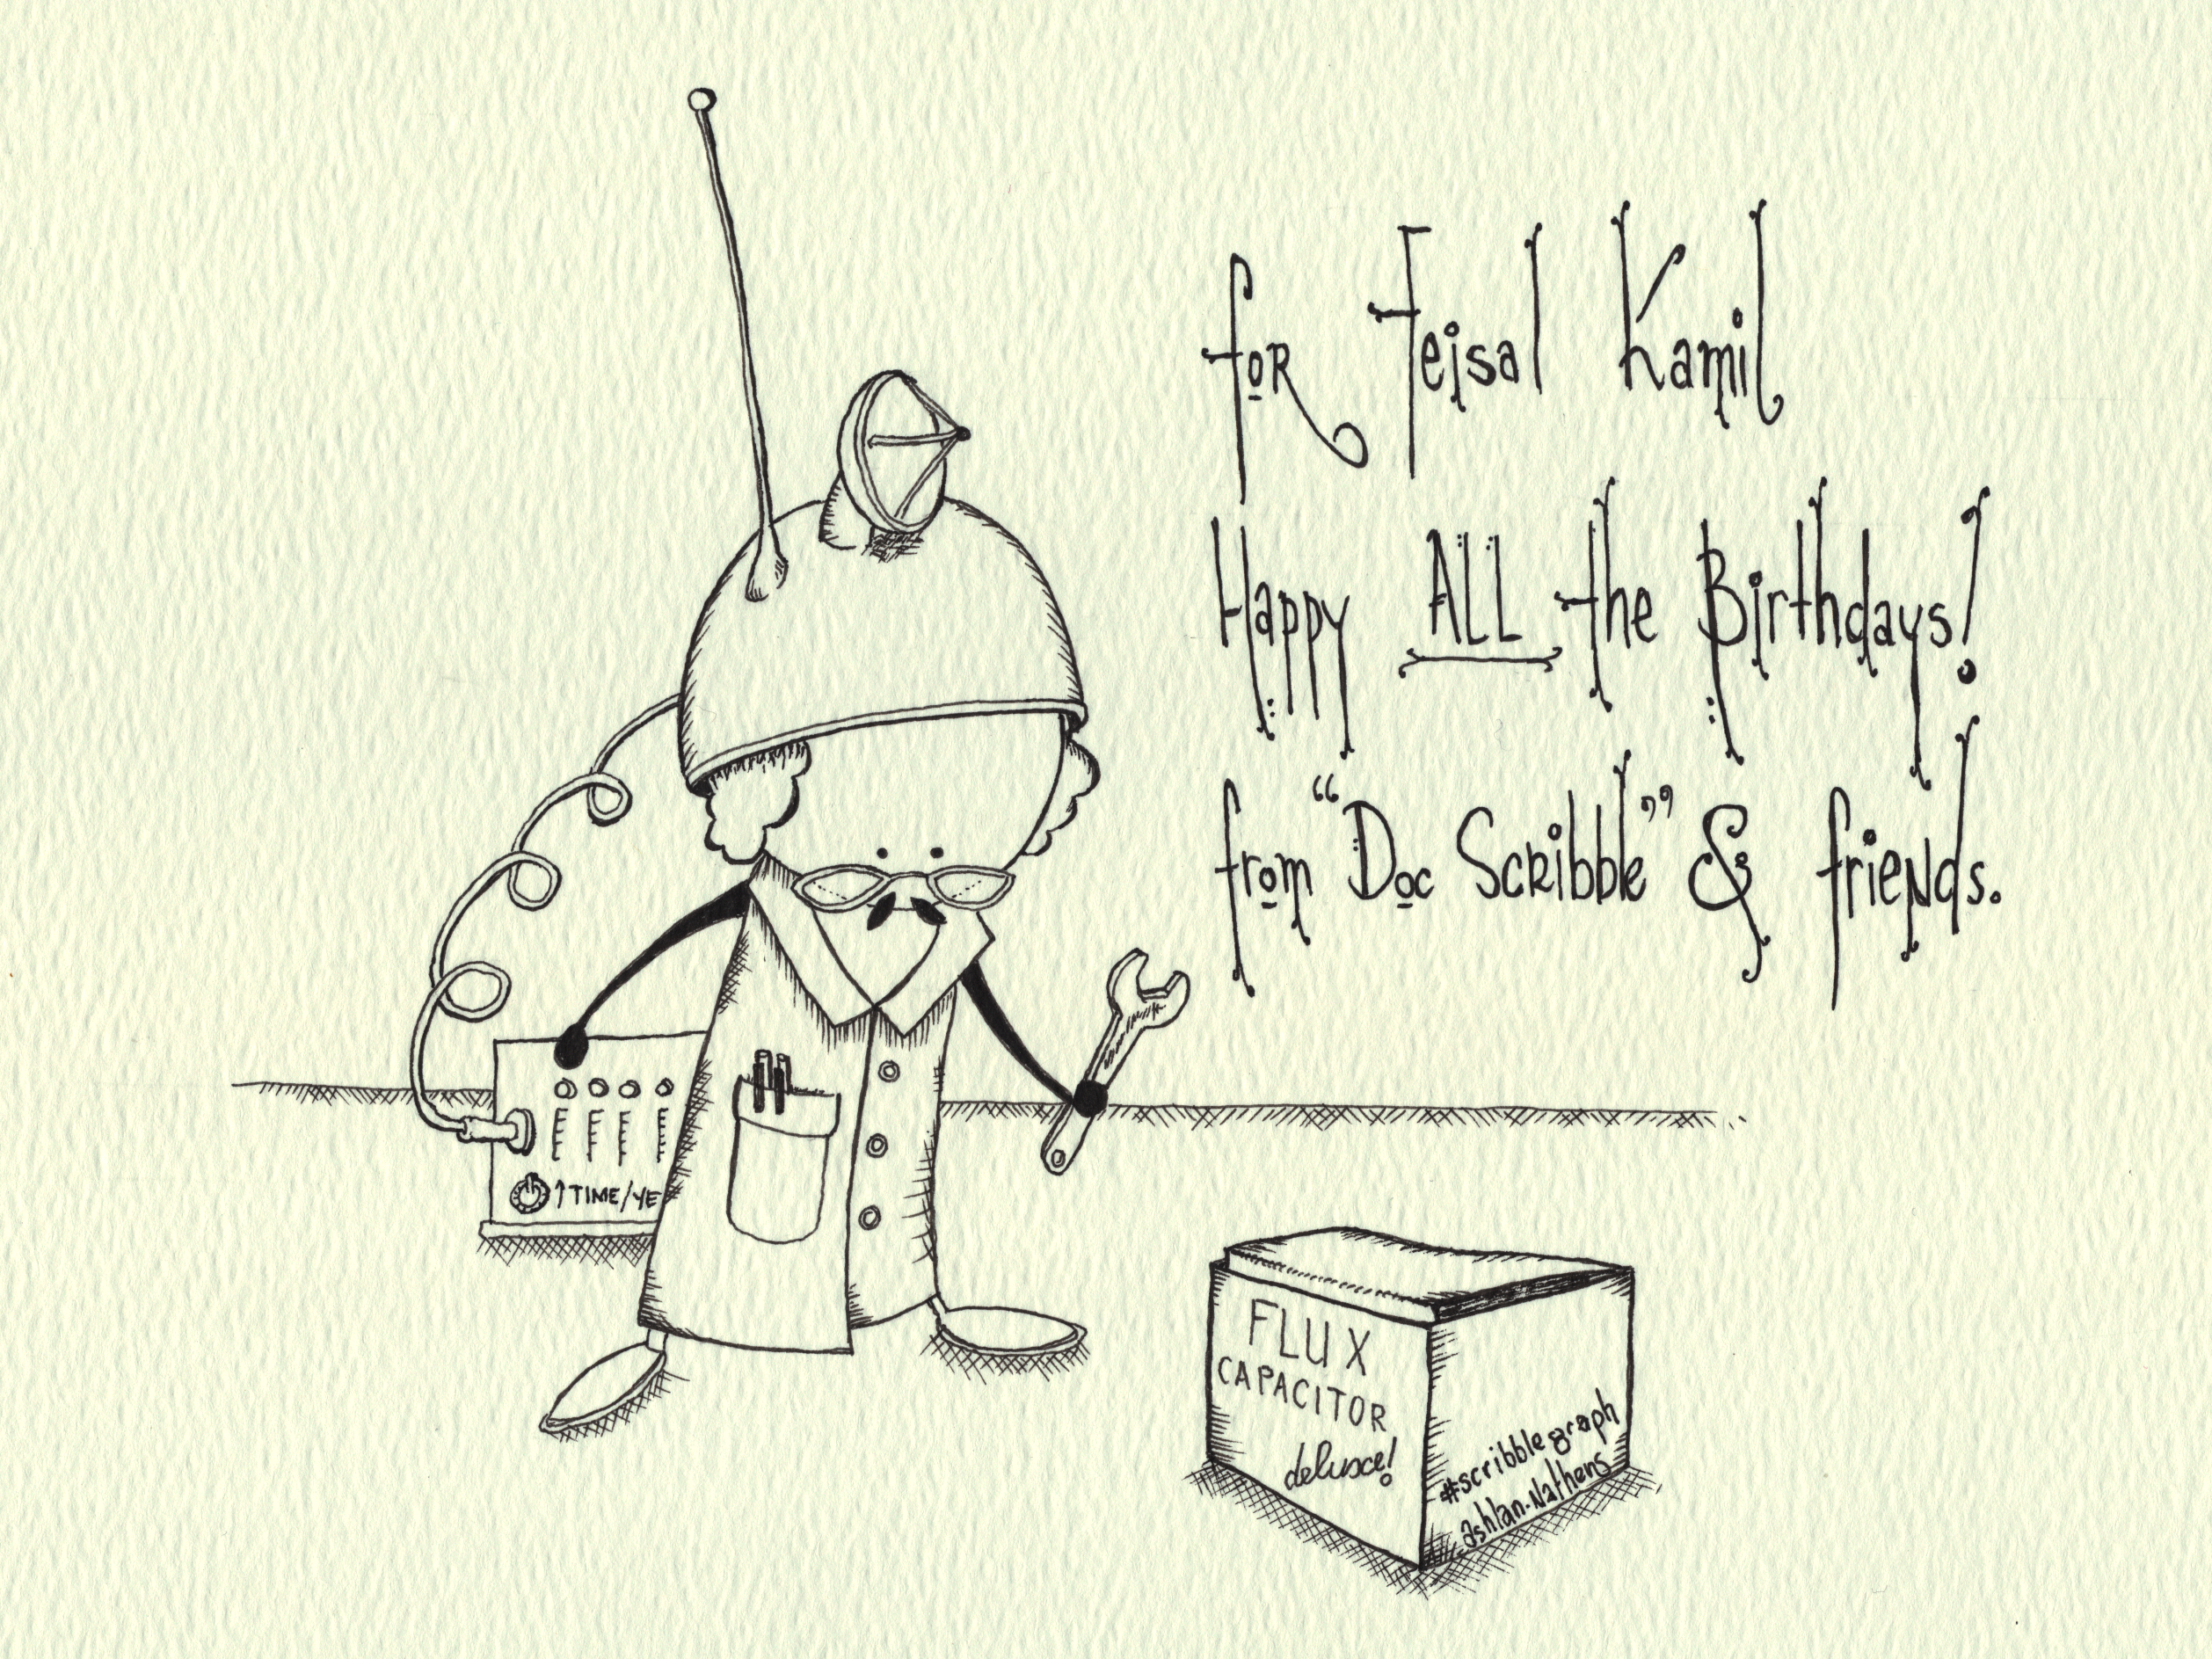 for Feisal Kamil
Happy ALL the Birthdays!
from "Doc Scribble" & friends.
↑TIME/YE
FLUX
CAPACITOR
deluxe!
#scribblegraph
ashlan.nathens